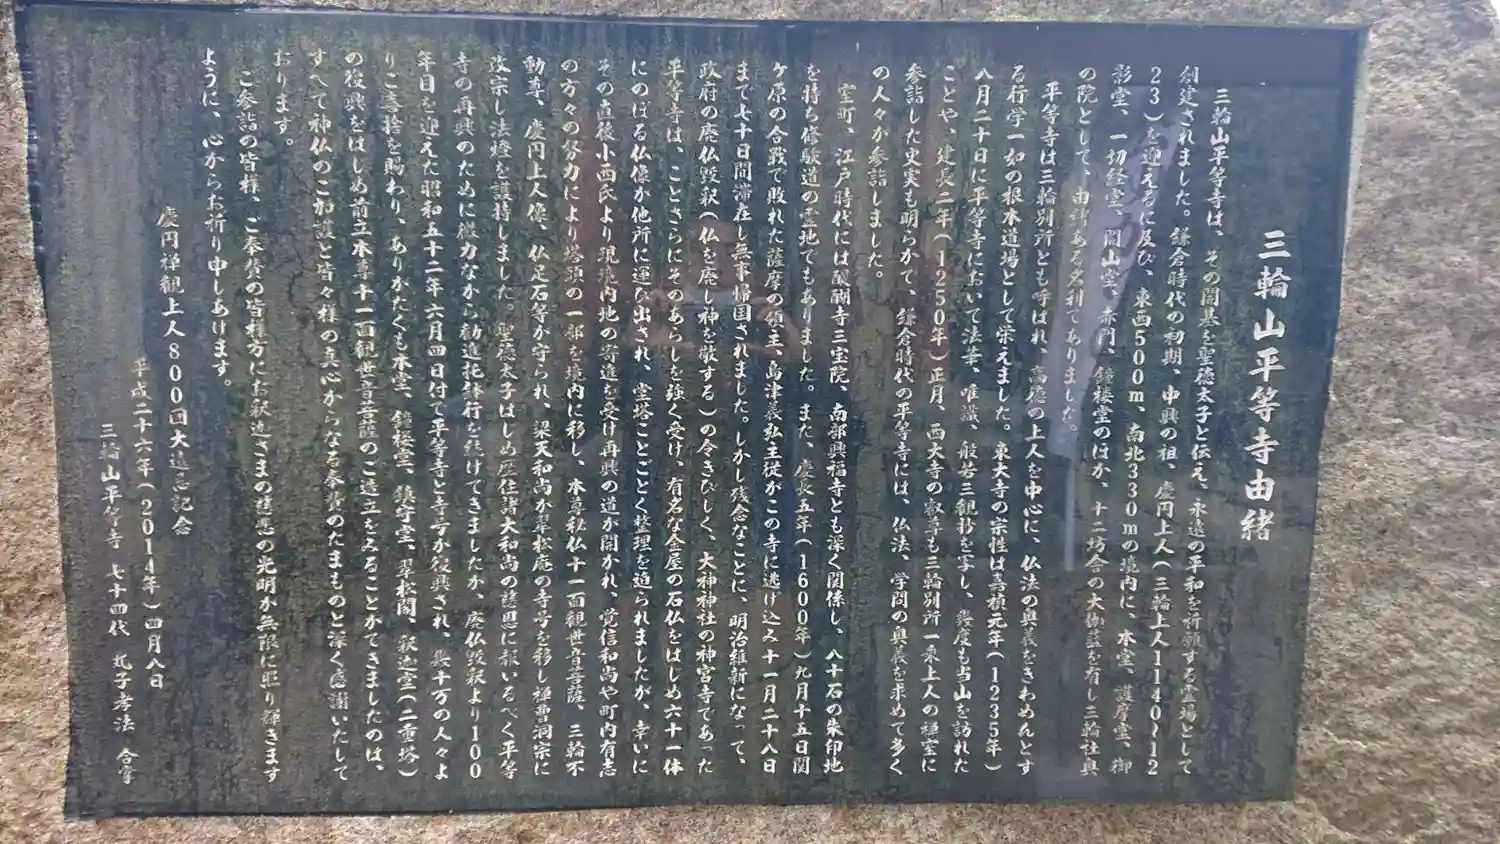 三輪山平等寺由緒
三輪山平等寺は、その開基を聖徳太子と伝え、永遠の平和を祈願する霊場として
創建されました。鎌倉時代の初期、中興の祖、慶円上人(三輪上人1140〜12
23)を迎えるに及び、東西500m、南北330mの境内に、本堂、護摩堂、御
影堂、一切経堂、開山堂、赤門、鐘楼堂のほか、十二坊舎の大伽藍を有し三輪社奥
の院として、由緒ある名刹でありました。
平等寺は三輪別所とも呼ばれ、高徳の上人を中心に、仏法の奥義をきわめんとす
る行学一如の根本道場として栄えました。東大寺の宗性は嘉禎元年(1235年)
八月二十日に平等寺において法華、唯識、般若三観抄を写し、幾度も当山を訪れた
ことや、建長二年(1250年)正月、西大寺の叡尊も三輪別所一乗上人の禅室に
参詣した史実も明らかで、鎌倉時代の平等寺には、仏法、学問の奥義を求めて多く
の人々が参詣しました。
室町、江戸時代には醍醐寺三宝院、南都興福寺とも深く関係し、八十石の朱印地
を持ち修験道の霊地でもありました。また、慶長五年(1600年)九月十五日関
ヶ原の合戦で敗れた薩摩の領主、島津義弘主従がこの寺に逃げ込み十一月二十八日
まで七十日間滞在し無事帰国されました。しかし残念なことに、明治維新になって、
政府の廃仏毀釈(仏を廃し神を敬する)の令きびしく、大神神社の神宮寺であった
平等寺は、ことさらにそのあらしを強く受け、有名な金屋の石仏をはじめ六十一体
にのぼる仏像が他所に運び出され、堂塔ことごとく整理を迫られましたが、幸いに
その直後小西氏より現境内地の寄進を受け再興の道が開かれ、覚信和尚や町内有志
の方々の努力により塔頭の一部を境内に移し、本尊秘仏十一面観世音菩薩、三輪不
動尊、慶円上人像、仏足石等が守られ、梁天和尚が翠松庵の寺号を移し禅曹洞宗に
改宗し法燈を護持しました。聖徳太子はじめ歴住諸大和尚の慈恩に報いるべく平等
寺の再興のために微力ながら勧進托鉢行を続けてきましたが、廃仏毀釈より100
年目を迎えた昭和五十二年六月四日付で平等寺と寺号が復興され、幾十万の人々よ
りご喜捨を賜わり、ありがたくも本堂、鐘楼堂、鎮守堂、翠松閣、釈迦堂(二重塔)
の復興をはじめ前立本尊十一面観世音菩薩のご造立をみることができましたのは、
すべて神仏のご加護と皆々様の真心からなる奉賛のたまものと深く感謝いたして
おります。
ご参詣の皆様、ご奉賛の皆様方にお釈迦さまの慈悲の光明が無限に照り輝きます
ように、心からお祈り申しあげます。
慶円禅観上人800回大遠忌記念
平成二十六年(2014年)四月八日
三輪山平等寺 七十四代 丸子孝法 合掌